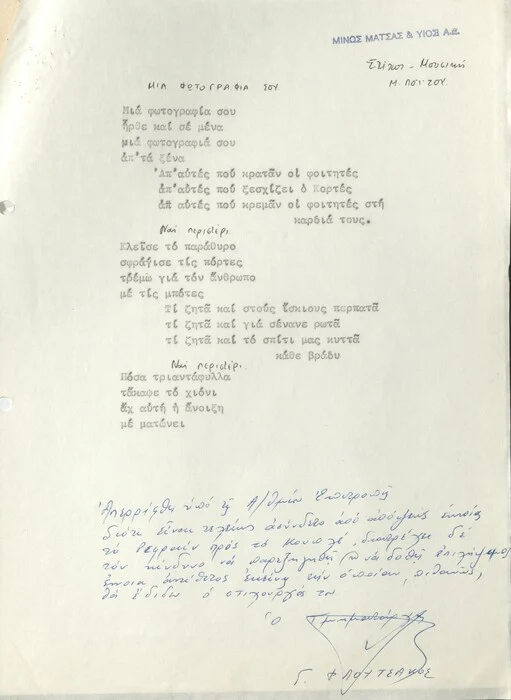 ΜΙΝΩΣ ΜΑΤΣΑΣ & ΥΙΟΣ Α.Ε.
Στίχοι - Μουσική
Μ. ΛΟΪΖΟΥ.
ΜΙΑ ΦΩΤΟΓΡΑΦΙΑ ΣΟΥ
Μιά φωτογραφία σου
ἦρθε καί σέ μένα
μιά φωτογραφιά σου
ἀπ'τά ξένα
'Απ'αὐτές πού κρατᾶν οἱ φοιτητές
ἀπ'αὐτές πού ξεσχίζει ὁ Κορτές
ἀπ αὐτές πού κρεμᾶν οἱ φοιτητές στή
καρδιά τους.
Ναί περιστέρι.
Κλεῖσε τό παράθυρο
σφράγισε τίς πόρτες
τρέμω γιά τόν ἄνθρωπο
μέ τίς μπότες
Τί ζητᾶ καί στούς ἴσκιους περπατᾶ
τί ζητᾶ καί γιά σένανε ρωτᾶ
τί ζητᾶ καί τό σπίτι μας κυττᾶ
κάθε βράδυ
Ναί περιστέρι.
Πόσα τριαντάφυλλα
τἄκαψε τό χιόνι
ἄχ αὐτή ἡ ἄνοιξη
μέ ματώνει
Ἀπερρίφθη ὑπό τῆς Α/θμίου Ἐπιτροπῆς
διότι εἶναι τελείως ἀσύνδετο ἀπό ἀπόψεως ἐννοίας
τό Ρεφραίν πρός τό Κουπλέ, διατρέχει δέ
τόν κίνδυνο νά παρεξηγηθῆ νά δοθῆ
ἔννοια ἀντίθετος ἐκείνης τήν ὁποίαν, πιθανῶς,
θά ἔδιδε ὁ στιχουργός του
Ὁ Τμηματάρχης
Γ.